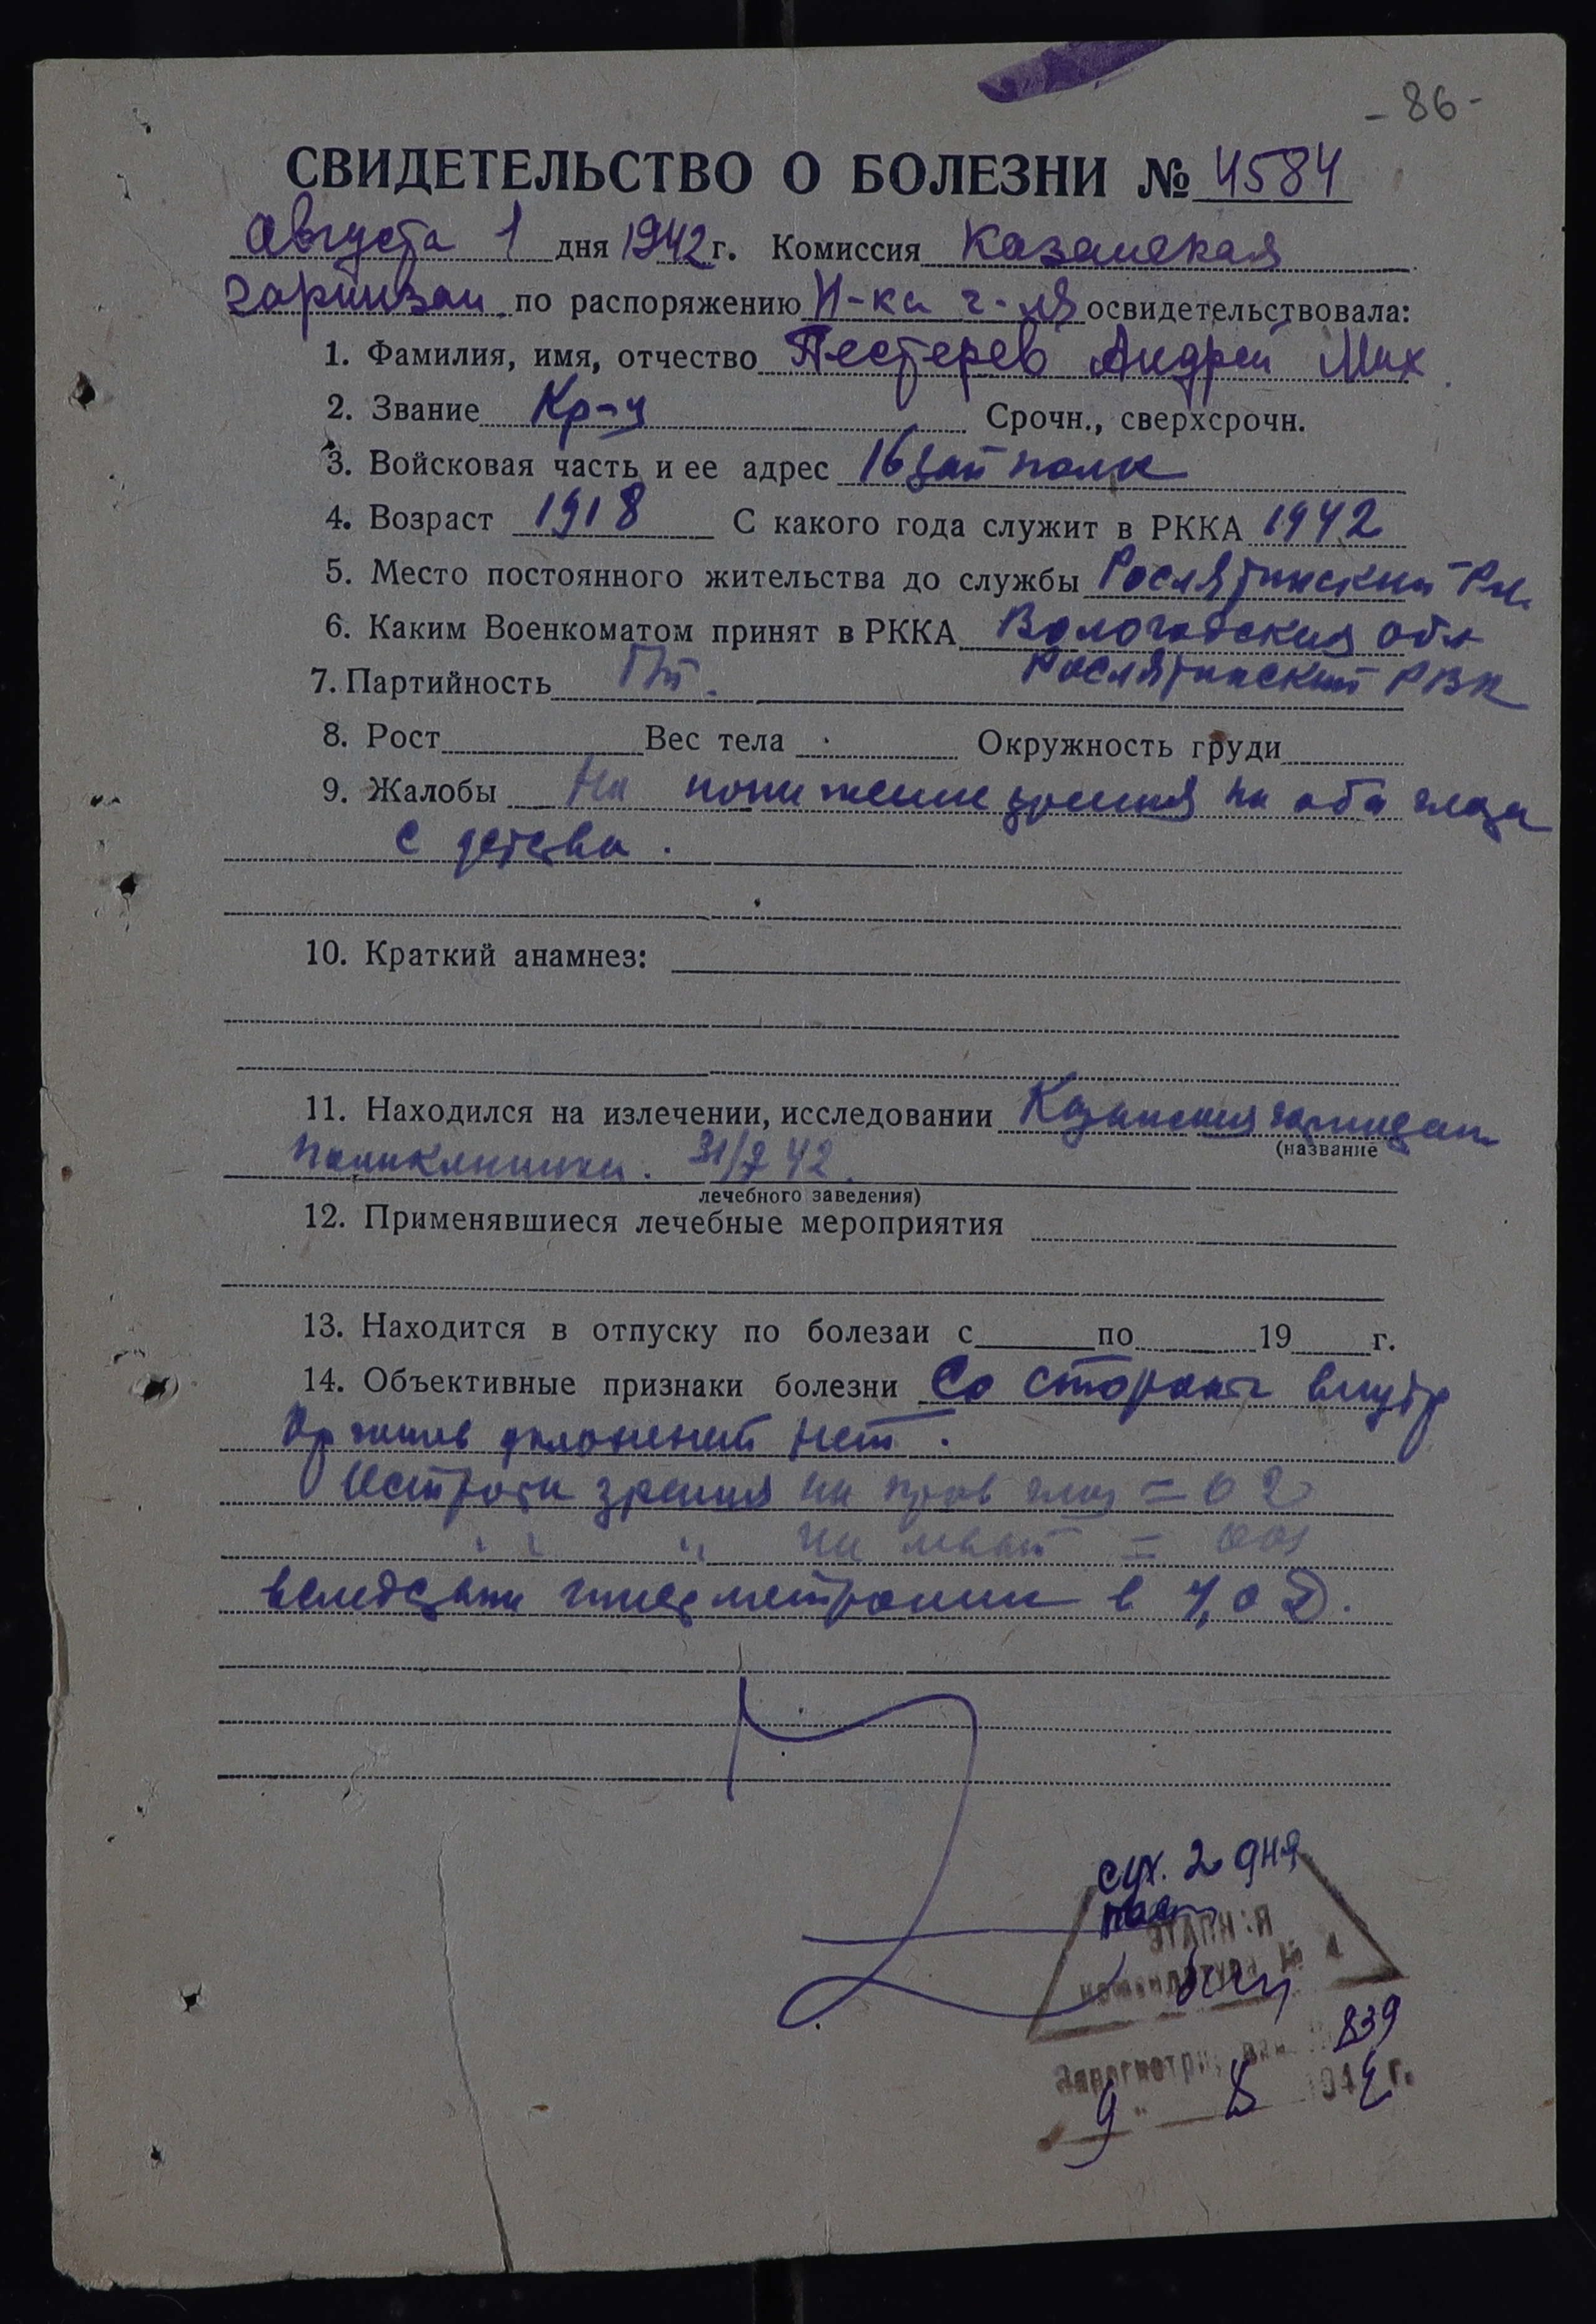 - 86 -
СВИДЕТЕЛЬСТВО О БОЛЕЗНИ № 4584
Августа 1 дня 1942 г. Комиссия Казанская
гарнизон. по распоряжению Н-ка г-ля освидетельствовала:
1. Фамилия, имя, отчество Пестерев Андрей Мих
2. Звание Кр-ц Срочн., сверхсрочн.
3. Войсковая часть и ее адрес 16 зап полк
4. Возраст 1918 С какого года служит в РККА 1942
5. Место постоянного жительства до службы Рослятинский
6. Каким Военкоматом принят в РККА Вологодская обл
Рослятинский РВК
7. Партийность
8. Рост Вес тела Окружность груди
9. Жалобы На понижение зрения на оба глаза
с детства.
10. Краткий анамнез:
11. Находился на излечении, исследовании Казанская гарнизон
(название
поликлиника. 31/7 42.
лечебного заведения)
12. Применявшиеся лечебные мероприятия
13. Находится в отпуску по болезаи с по 19 г.
14. Объективные признаки болезни Со стороны внутр
органов уклонений нет.
Острота зрения на прав глаз = 0 2
" " " на левый =
вследствии гиперметропии в 4,0 D.
сух. 2 дня
ЭТАПН:Я
комендатура № 4
839
9 " 8 194 2 г.